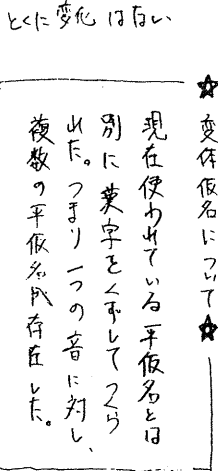 とくに変化はない
☆変体仮名について☆
現在使われている平仮名とは
別に漢字をくずしてつくら
れた。つまり一つの音に対し、
複数の平仮名が存在した。